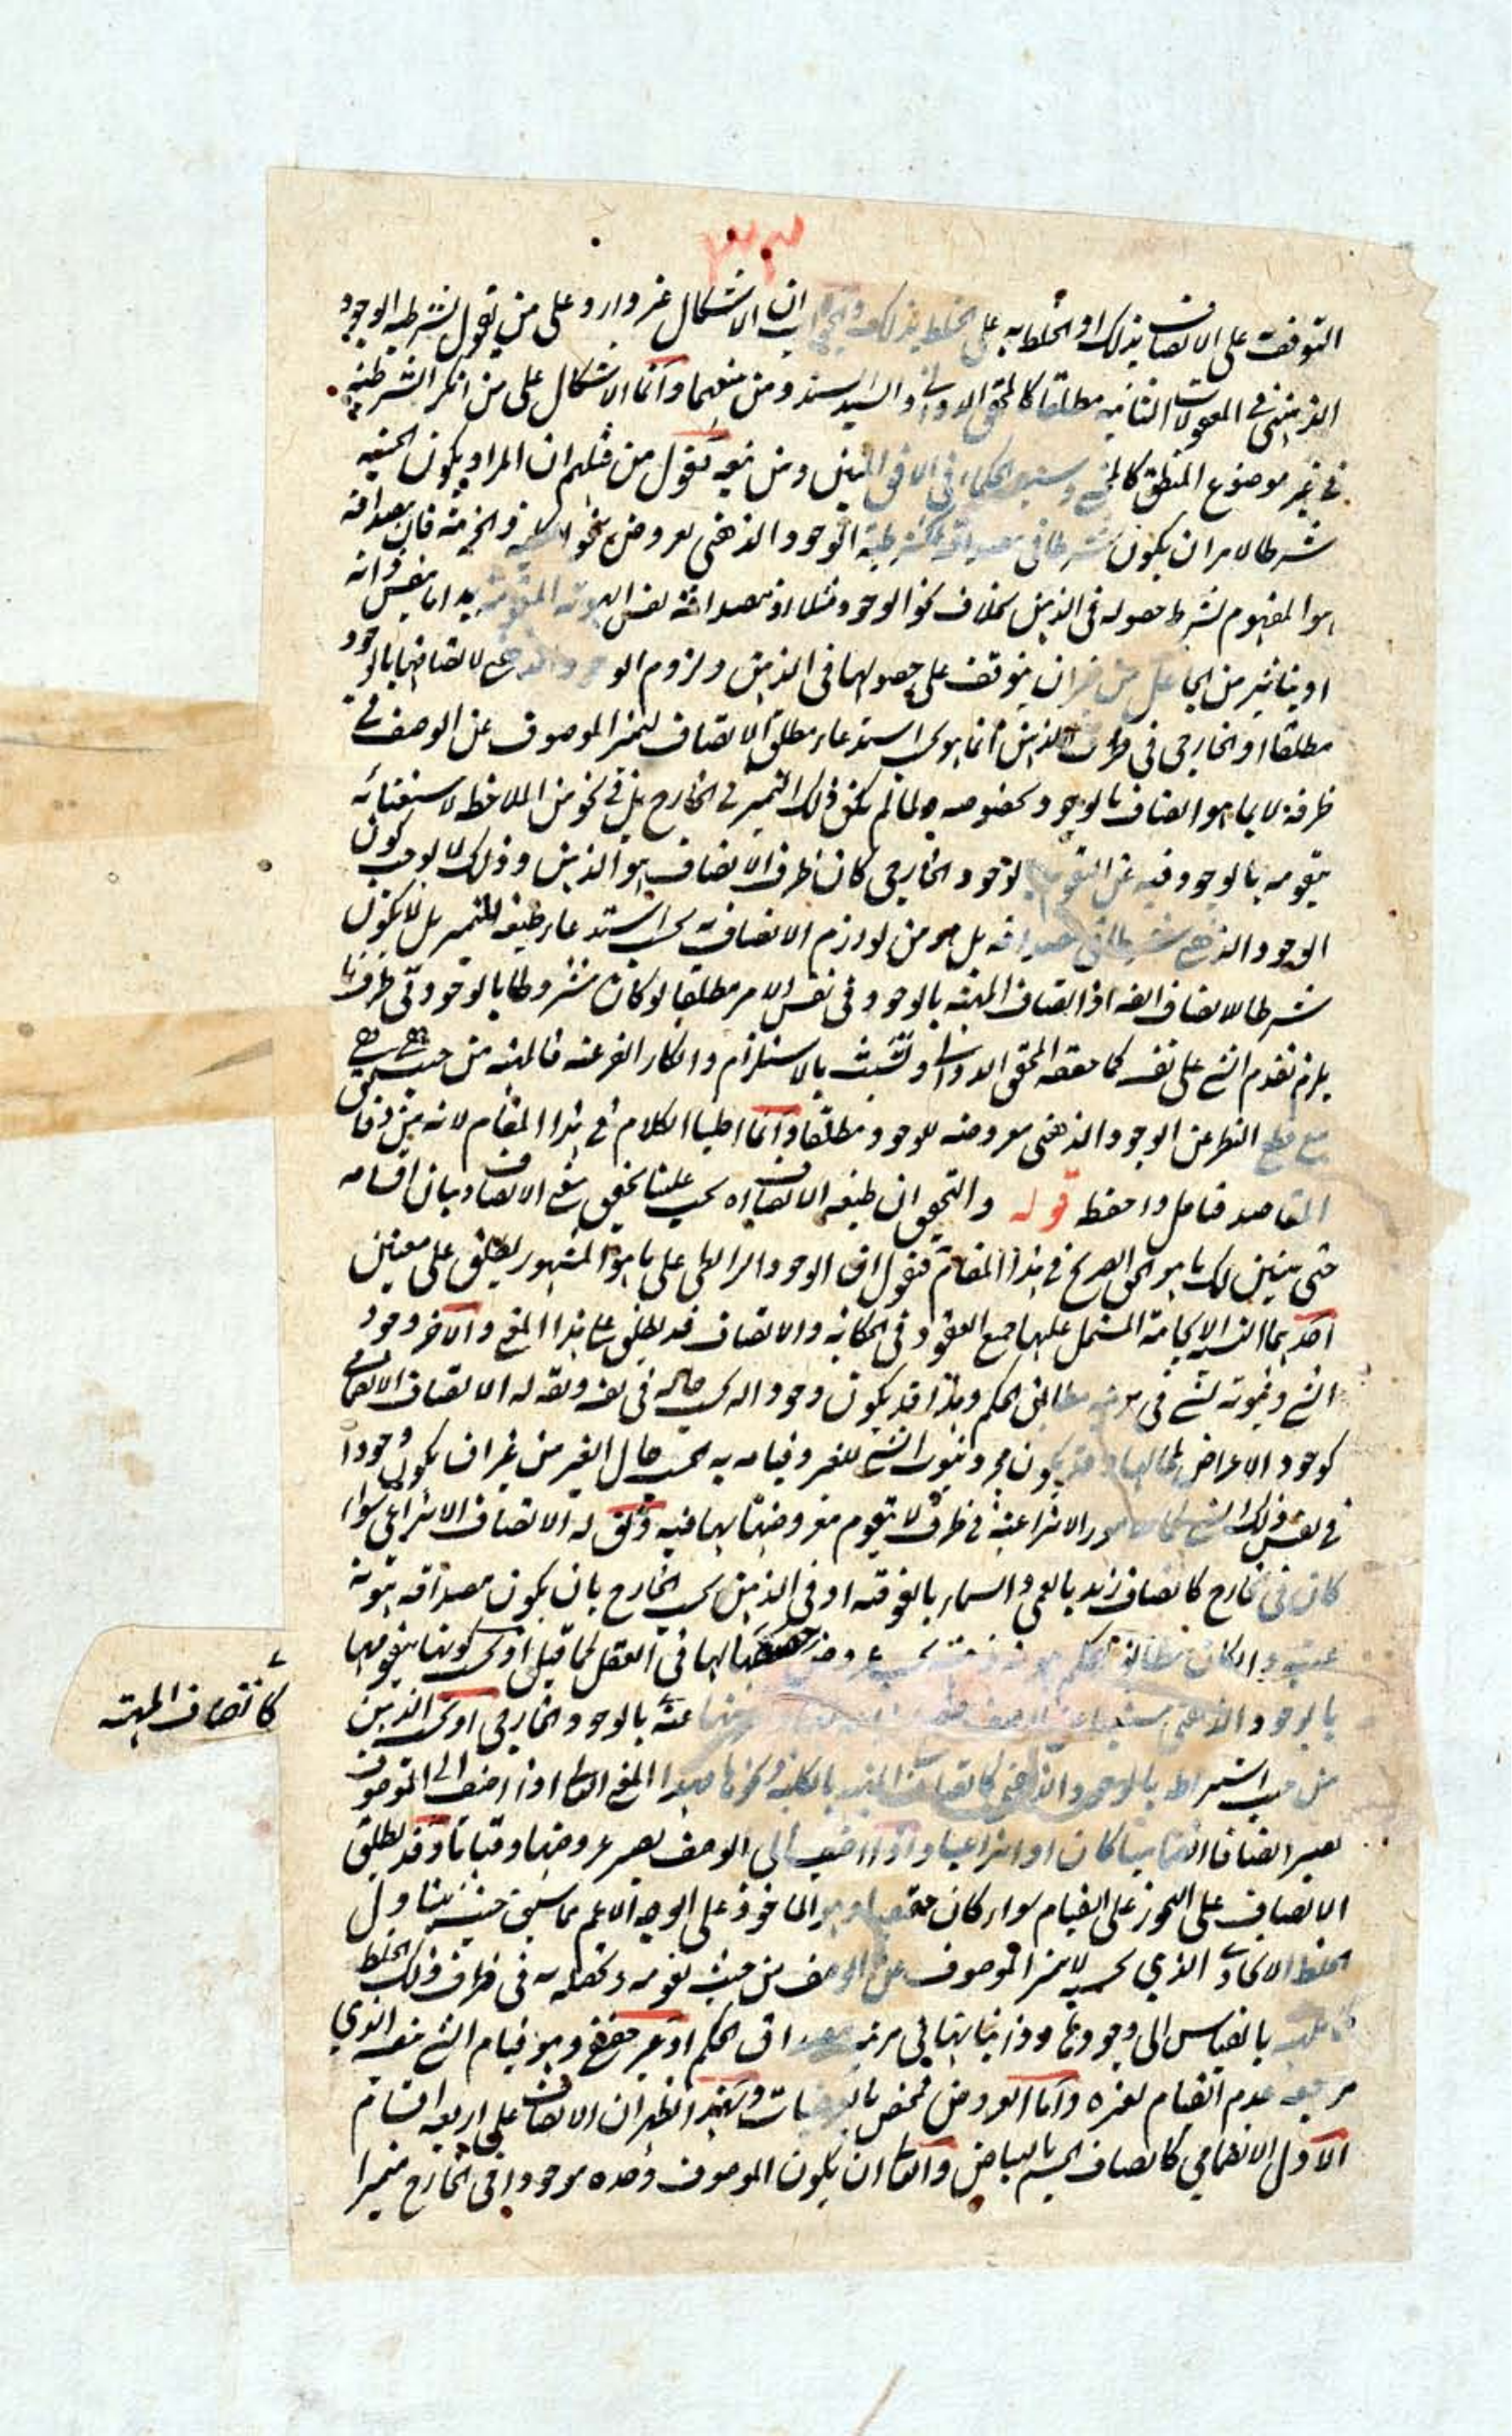 التوقف على الاتصاف بذلك او الخلط به على الخلط بذلك والجواب ان الاشكال غير وارد على من يقول بشرطية الوجود
الذهني في المعقولات الثانية مطلقا كالمحقق الدواني والسيد السند ومن تبعهما وانما الاشكال على من انكر الشرطية
في غير موضوع المنطق وسيد الحكماء في الافق المبين ومن تبعه نقول من قبلهم ان المراد بكون الحيثية
شرطا لامر ان يكون شرطا في مصداقه كشرطية الوجود الذهني لعروض نحو الكلية والجزئية فان مصداقه
هو المفهوم بشرط حصوله في الذهن بخلاف نحو الوجود مثلا اذ مصداقه نفس الهوية اما بنفس ذاته
او بتاثير من الجاعل من غير ان يتوقف على حصولها في الذهن ولزوم الوجود الذهني لاتصافها بالوجود
مطلقا او الخارجي في ظرف الذهن انما هو لاستدعاء مطلق الاتصاف لتميز الموصوف عن الوصف في
ظرفه لا بما هو اتصاف بالوجود بخصوصه ولما لم يكن ذلك التميز في الخارج بل في نحو من الملاحظة لاستغنائه
بتقومه بالوجود فيه عن التقوم الوجود الخارجي كان ظرف الاتصاف هو الذهن وذلك لا يوجب كون
الوجود الذهني شرطا في مصداقه بل هو من لوازم الاتصاف به بحسب استدعاء طبيعة التميز بل لا يكون
شرطا للاتصاف ايضا اذ اتصاف المهية بالوجود في نفس الامر مطلقا لو كان مشروطا بالوجود في ظرفها
يلزم تقدم الشئ على نفسه كما حققه المحقق الدواني وتشبث بالاستلزام وانكار الفرعية فالمهية من حيث هي هي
مع قطع النظر عن الوجود الذهني معروضة للوجود مطلقا وانما اطنبنا الكلام في هذا المقام لانه من دقائق
المقاصد فتامل واحفظ قوله والتحقيق ان طبيعة الاتصاف اه يجب علينا تحقيق معنى الاتصاف وبيان اقسامه
حتى يتبين لك ما هو الحق الصريح في هذا المقام فنقول ان الوجود الرابطي على ما هو المشهور يطلق على معنيين
احدهما النسبة الايجابية المشتمل عليها جميع العقود في الحكاية والاتصاف قد يطلق على هذا المعنى والاخر وجود
الشئ وثبوته لشئ في مرتبة مطابق الحكم وهذا قد يكون وجودا له بحسب حاله في نفسه ويقال له الاتصاف الانضمامي
كوجود الاعراض لمحالها وقد يكون مجرد ثبوت الشئ للغير وقيامه به بحسب حال الغير من غير ان يكون وجودا
في نفسه لذلك الشئ الامور الانتزاعية في ظرف لا تقوم معروضيتها بها فيه ويقال له الاتصاف الانتزاعي سواء
كان في الخارج كاتصاف زيد بالعمى والسماء بالفوقية او في الذهن بحسب الخارج بان يكون مصداقه هوية
عينية وان كان مطابق الحكم في العقل كما قيل او بحسب كونها بتقومها
بالوجود الذهني عينه بالوجود الخارجي او بحسب الذهن
من حيث اشتراطه بالوجود الذهني كاتصاف المهية بالكلية ونحوها هذا المعنى الثاني اذا اضيف الى الموصوف
يصير اتصافا انضماميا كان او انتزاعيا واذا اضيف الى الوصف يصير عروضها وقيامها وقد يطلق
الاتصاف على التجوز على القيام سواء كان حقيقيا وهو الماخوذ على الوجه الاعم مما سبق حيث يتناول
الخلط الاتحادي الذي بحسبه لا يتميز الموصوف عن الوصف من حيث تقومه وتحصله في ظرف ذلك الخلط
بالقياس الى وجودها وذاتياتها في مرتبة مصداق الحكم او غير حقيقي وهو قيام الشئ بنفسه الذي
مرجعه عدم القيام لغيره واما العروض فمختص بالعرضيات وبهذا ظهر ان الاتصاف على اربعة اقسام
الاول الانضمامي كاتصاف الجسم بالبياض والثاني ان يكون الموصوف وحده موجودا في الخارج متميزا
كاتصاف المهية